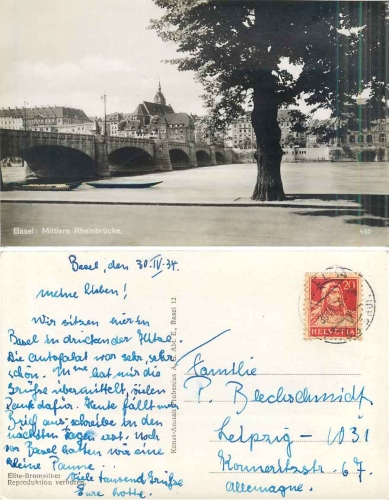 Basel: Mittlere Rheinbrücke.
Basel, den 30.IV.34.
Meine Lieben!
Wir sitzen hier in
Basel in drückender Hitze.
Die Autofahrt war sehr, sehr
schön. In mir hat mir die
Grüsse übermittelt, vielen
Dank dafür. Heute fällt mein
Brief aus, schreibe in den
nächsten Tagen erst. Noch
vor Basel hatten wir eine
kleine Panne.
Viele tausend Grüsse
Eure Lotte.
Elite-Bromsilber
Reproduktion verboten
Kunst-Anstalt Frobenius A.G. Abt. E., Basel 12
20
HELVETIA
Familie
P. Bechschmidt
Leipzig - 1031
Konneritzstr. 67.
Allemagne.